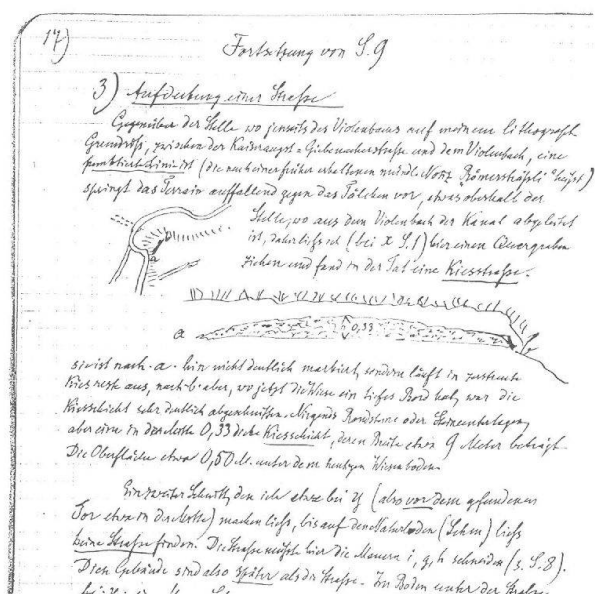 17)
Fortsetzung von S. 9
3) Aufdeckung einer Straße
Gegenüber der Stelle wo jenseits des Violenbachs auf meinem lithograph
Grundriß, zwischen der Kaiseraugst = Giebenacherstraße und dem Violenbach, eine
punktierte Linie ist (die nach einer früher erhaltenen mündl. Notiz "Römersträßli" heißt)
springt das Terrain auffallend gegen das Tälchen vor, etwas oberhalb der
Stelle, wo aus dem Violenbach der Kanal abgeleitet
ist, daher ließ ich (bei x S. 1) hier einen Quergraben
ziehen und fand in der Tat eine Kiesstraße.
a
0,33
sie ist nach a hin nicht deutlich markiert, sondern läuft in zerstreute
Kiesreste aus, nach b aber, wo jetzt die Wiese ein tiefes Bord hat, war die
Kiesschicht sehr deutlich abgeschnitten. Nirgends Randsteine oder Steinunterlagen,
aber eine in der Mitte 0,33 dicke Kiesschicht, deren Breite etwa 9 Meter beträgt.
Die Oberfläche etwa 0,50 M. unter dem heutigen Wiesenboden.
Ein zweiter Schnitt, den ich etwa bei y (also vor dem gefundenen
Tor etwa in der Mitte) machen ließ, bis auf den Naturboden (Lehm) ließ
keine Straße finden. Die Straße müßte hier die Mauern i, g, h schneiden (s. S. 8).
Diese Gebäude sind also später als die Straße. Im Boden unter der Straße